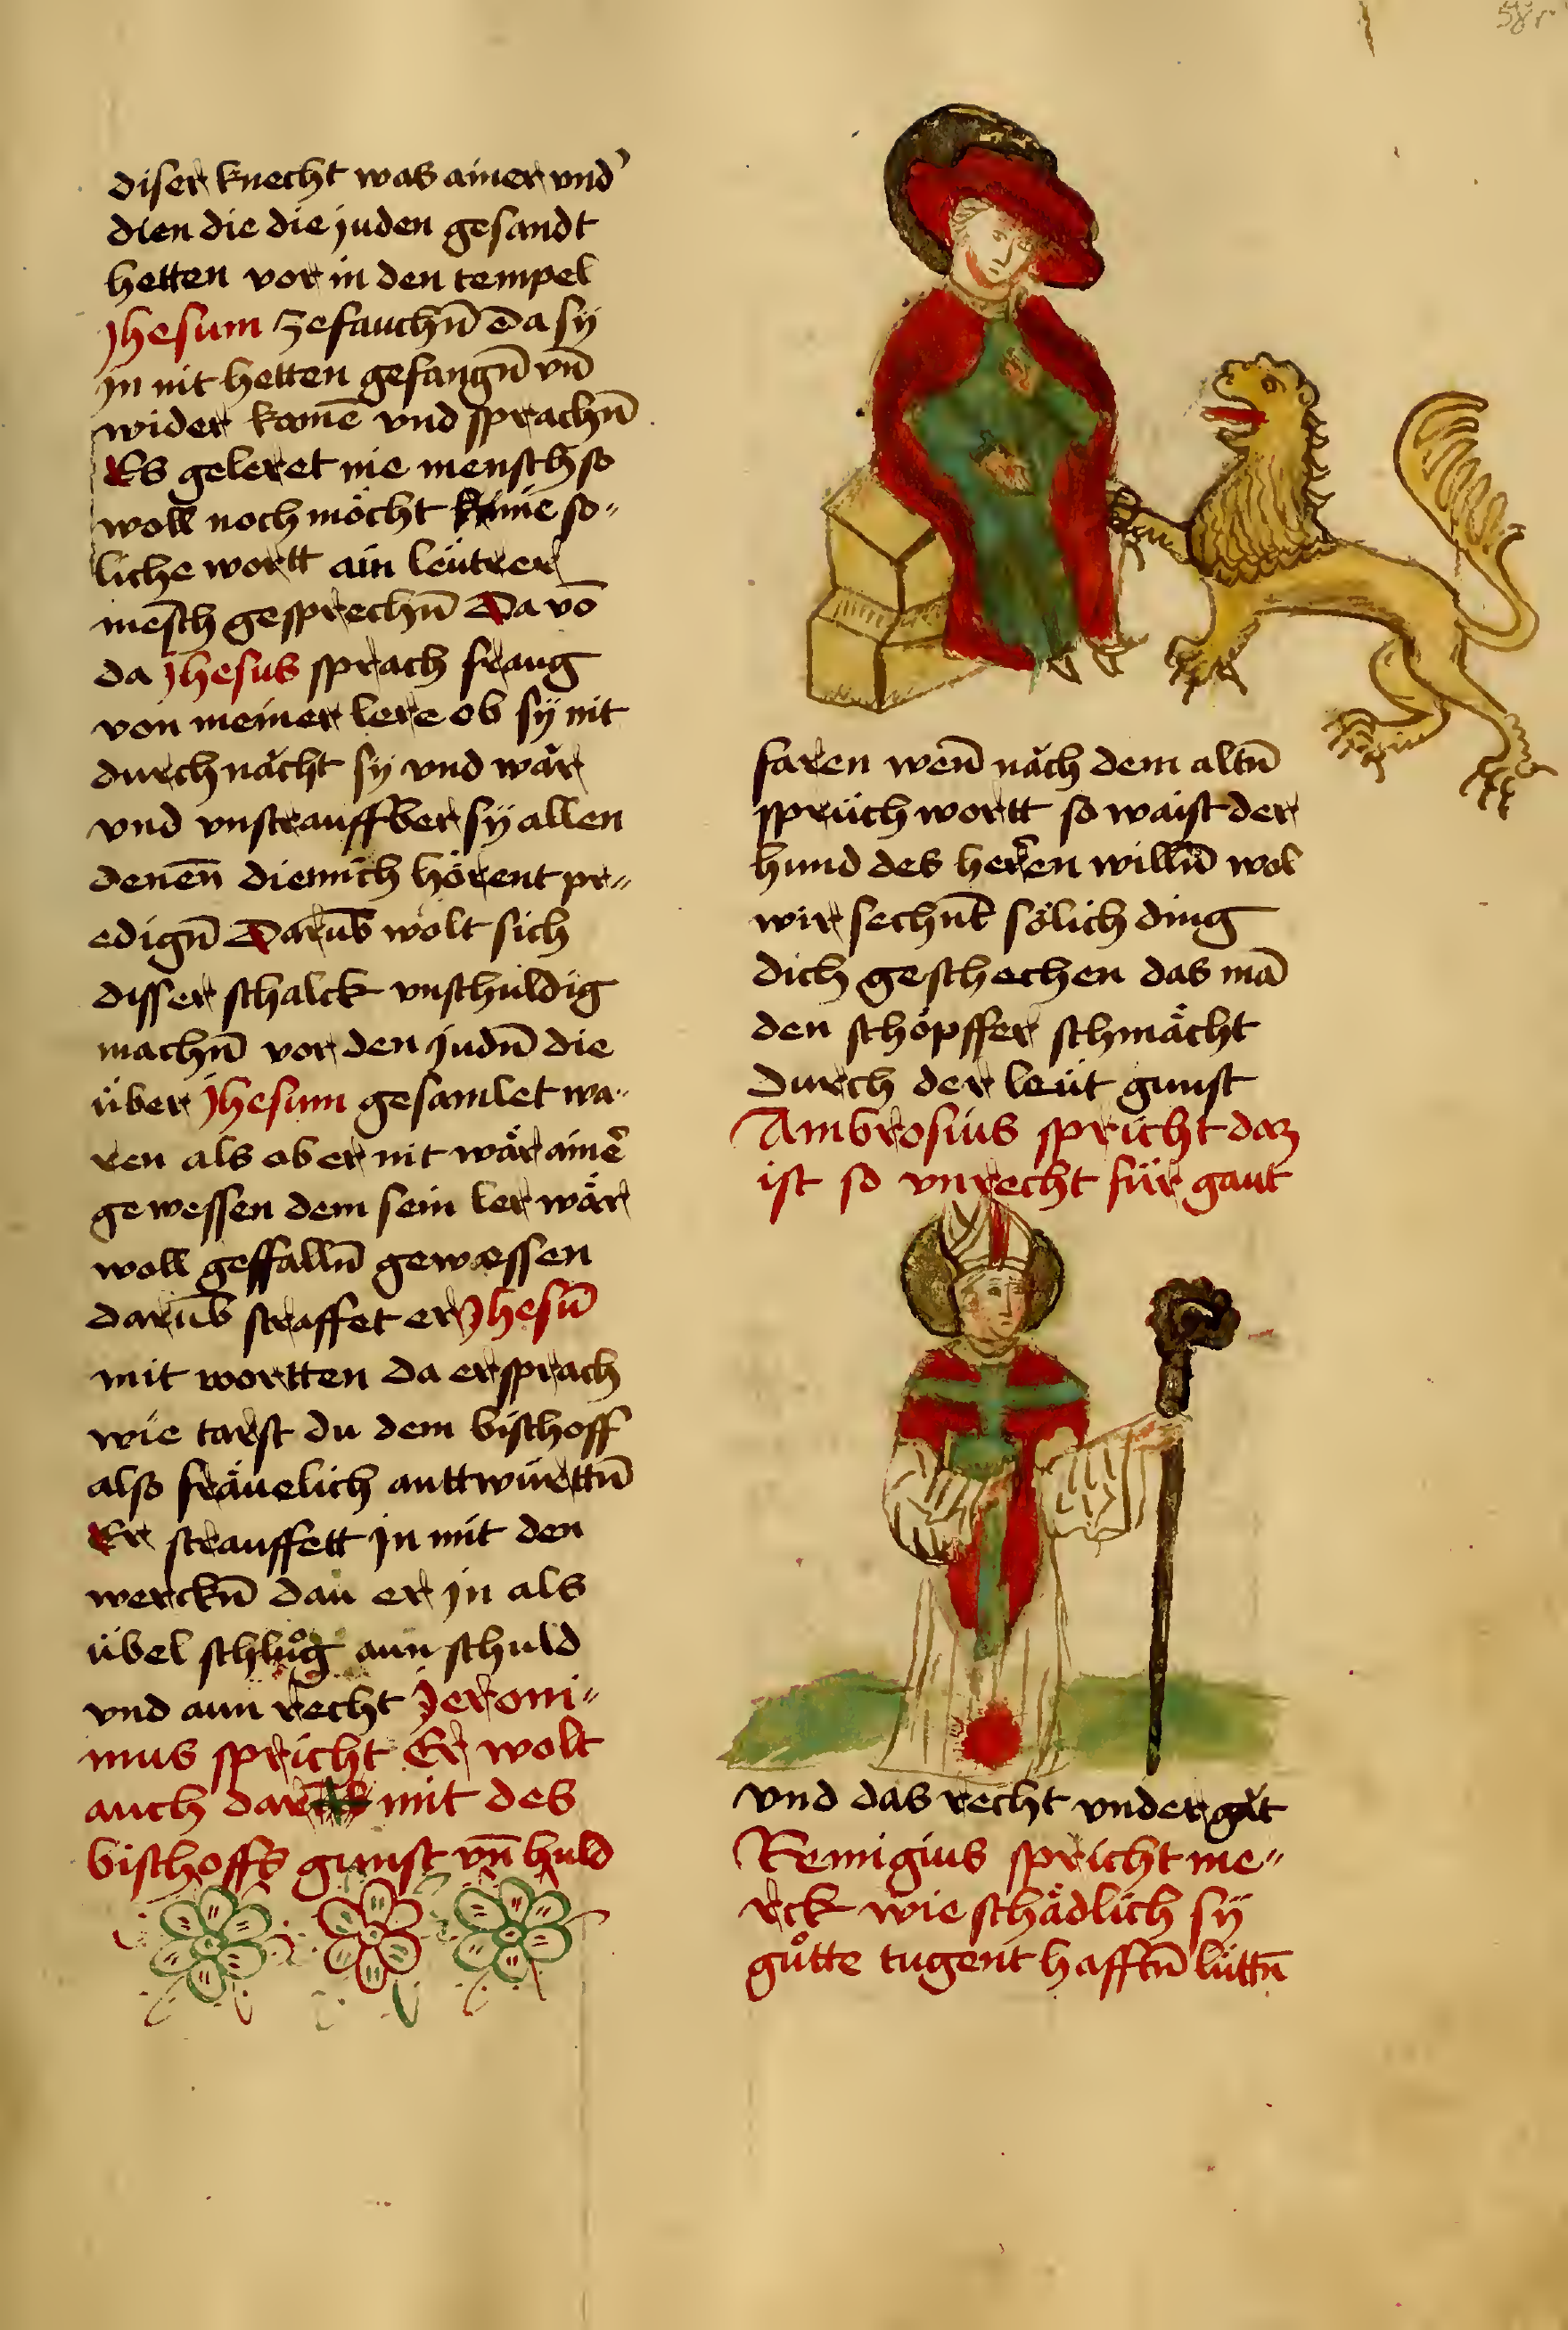 58r
diser knecht was ainer vnd᾿
dien die die juden gesandt
hetten vor in den tempel
Jhesum zefauchn̄ da sÿ
jn nit hetten gefangn̄ vn̄
wider komē vnd sprachn̄
Es geleret nie mensch so
woll noch möcht kainē so-
liche wortt ain leütrer
mēsch gesprechn̄ Da vō
da jhesus sprach fraug
von meiner lere ob sÿ nit
durchnächt sÿ vnd wār
vnd vnstrauffber sÿ allen
denēn die mich hörent pr-
edign̄ Darūb wolt sich
disser schalck vnschuldig
machn̄ vor den judn̄ die
über jhesum gesamlet wa-
ren als ob er nit wär ainē
gewessen dem sein ler wär
woll geffalln̄ gewessen
darūb straffet er Jhesū
mit wortten da er sprach
wie tarst du dem bischoff
also fräuelich anttwürttn̄
Er strauffett jn mit den
werckn̄ dan er jn als
übel schlůg aun schuld
vnd aun recht Jeroni-
mus spricht Er wolt
auch mit des
bischoffs gunst vn̄ huld
faren wen̄ näch dem altn̄
sprüchwortt so waist der
hund des herren willn̄ wol
wir sechnt sölich ding
dich geschechen das mā
den schöpffer schmächt
durch der leüt gunst
Ambrosius spricht daz
ist so vnrecht für gaut
vnd das recht vndergāt
Remigius spricht me-
rck wie schädlich sÿ
gůtte tugenthafftn̄ lüttn̄